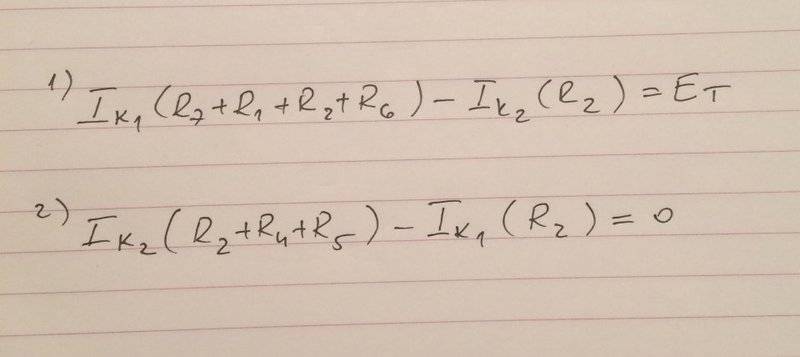 1) I_K₁ (R₇ + R₁ + R₂ + R₆) − I_K₂ (R₂) = E_T
2) I_K₂ (R₂ + R₄ + R₅) − I_K₁ (R₂) = 0